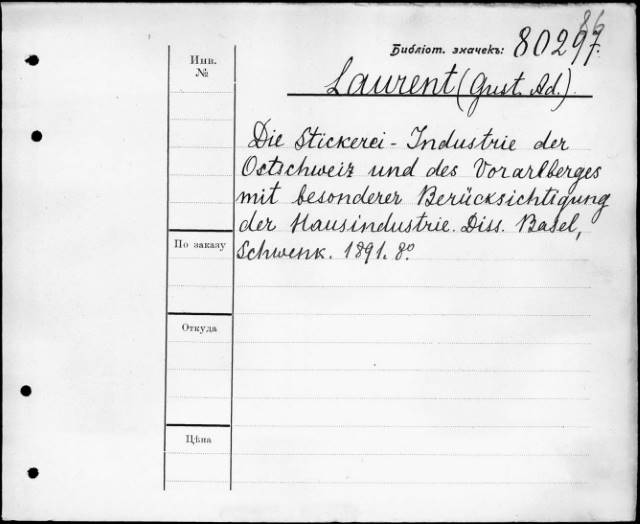 86
Библіот. значекъ: 80297.
Инв.
№
Laurent (Gust. Ad.).
Die Stickerei-Industrie der
Ostschweiz und des Vorarlberges
mit besonderer Berücksichtigung
der Hausindustrie. Diss. Basel,
Schwenk. 1891. 8º.
По заказу
Откуда
Цѣна